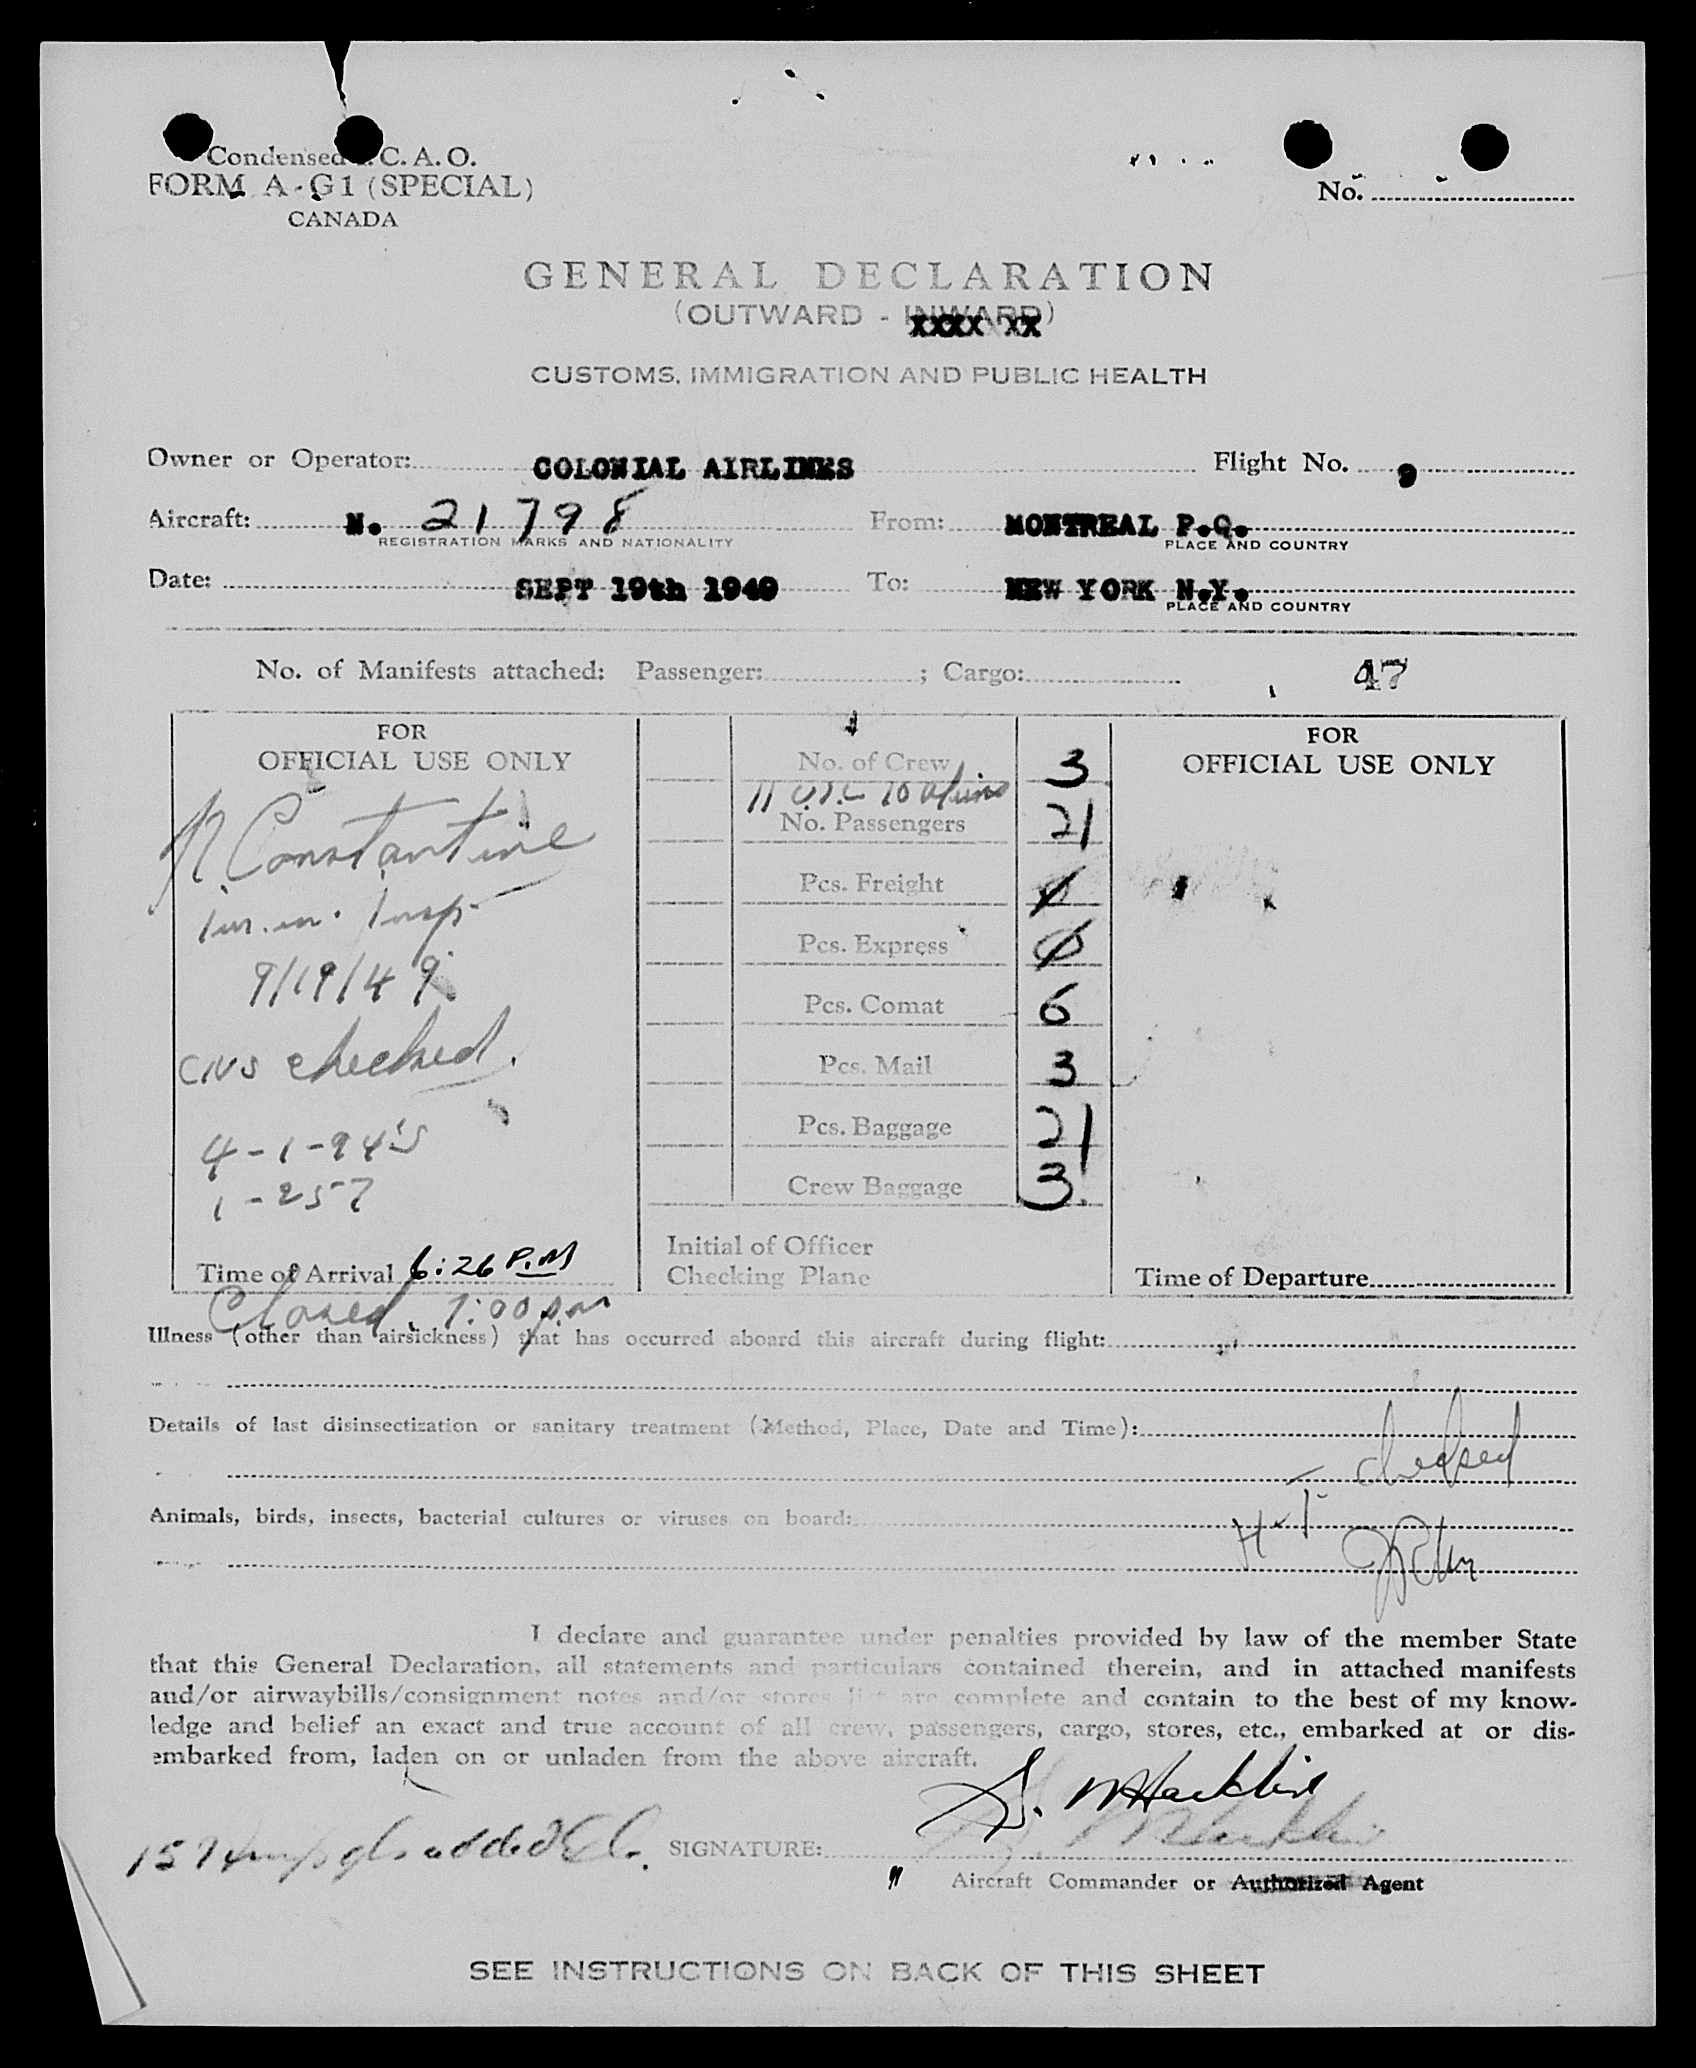 Condensed I. C. A. O.
FORM A-G1 (SPECIAL)
CANADA
No.
GENERAL DECLARATION
(OUTWARD - INWARD)
XXXX XX
CUSTOMS, IMMIGRATION AND PUBLIC HEALTH
Owner or Operator: COLONIAL AIRLINES Flight No. 9
Aircraft: N. 21798 From: MONTREAL P.Q.
REGISTRATION MARKS AND NATIONALITY PLACE AND COUNTRY
Date: SEPT 19th 1949 To: NEW YORK N.Y.
PLACE AND COUNTRY
No. of Manifests attached: Passenger: ; Cargo: 47
FOR
OFFICIAL USE ONLY
N Constantine
Imm. Insp.
9/19/49
CNS checked.
4-1-945
1-257
Time of Arrival 6:26 P.M
Closed 7:00 p.m
No. of Crew 3
11 U.S.C 10 aliens
No. Passengers 21
Pcs. Freight Ø
Pcs. Express Ø
Pcs. Comat 6
Pcs. Mail 3
Pcs. Baggage 21
Crew Baggage 3
Initial of Officer
Checking Plane
FOR
OFFICIAL USE ONLY
Time of Departure
Illness (other than airsickness) that has occurred aboard this aircraft during flight:
Details of last disinsectization or sanitary treatment (Method, Place, Date and Time):
checked
Animals, birds, insects, bacterial cultures or viruses on board:
I declare and guarantee under penalties provided by law of the member State
that this General Declaration, all statements and particulars contained therein, and in attached manifests
and/or airwaybills/consignment notes and/or stores list are complete and contain to the best of my know-
ledge and belief an exact and true account of all crew, passengers, cargo, stores, etc., embarked at or dis-
embarked from, laden on or unladen from the above aircraft.
added
SIGNATURE:
Aircraft Commander or Authorized Agent
SEE INSTRUCTIONS ON BACK OF THIS SHEET